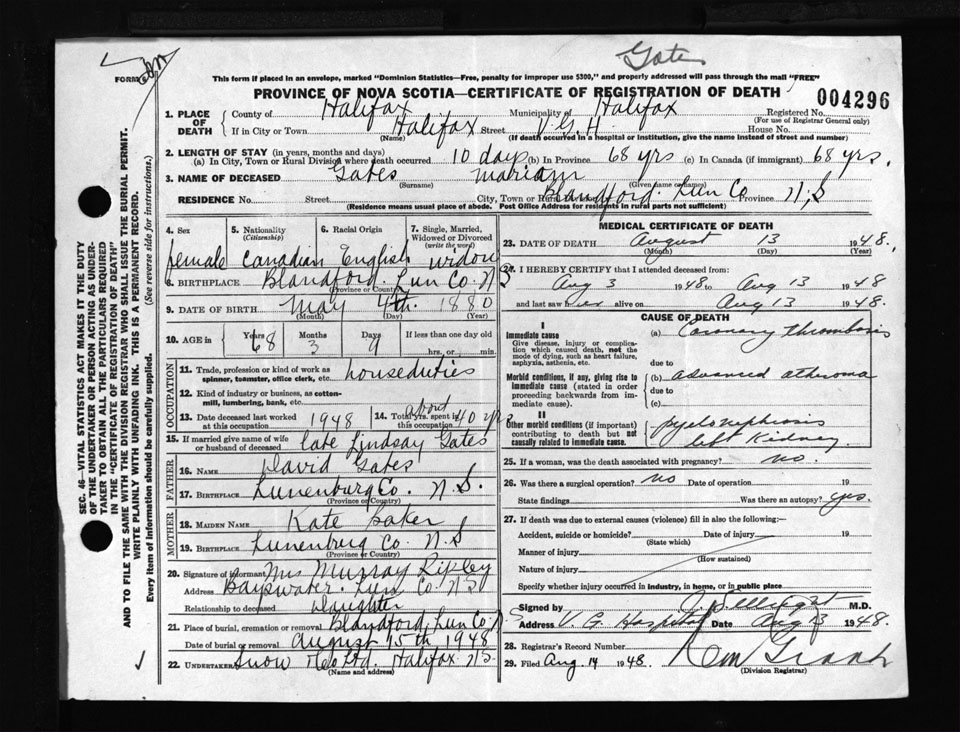 Gates
FORM
This form if placed in an envelope, marked "Dominion Statistics—Free, penalty for improper use $300," and properly addressed will pass through the mail "FREE"
PROVINCE OF NOVA SCOTIA—CERTIFICATE OF REGISTRATION OF DEATH
004296
1. PLACE OF DEATH County of Halifax Municipality of Halifax Registered No.
(For use of Registrar General only)
If in City or Town Halifax Street V.G.H House No.
(Name) (If death occurred in a hospital or institution, give the name instead of street and number)
2. LENGTH OF STAY (in years, months and days)
(a) In City, Town or Rural Division where death occurred 10 days (b) In Province 68 yrs (c) In Canada (if immigrant) 68 yrs.
3. NAME OF DECEASED Gates Mariam
(Surname) (Given name or names)
RESIDENCE No. Street City, Town or Rural Blandford. Lun Co Province N.S
(Residence means usual place of abode. Post Office Address for residents in rural parts not sufficient)
4. Sex 5. Nationality (Citizenship) 6. Racial Origin 7. Single, Married, Widowed or Divorced (write the word)
female Canadian English widow
8. BIRTHPLACE Blandford. Lun Co. N S
(Province or Country)
9. DATE OF BIRTH May 4th. 1880
(Month) (Day) (Year)
10. AGE in Years 68 Months 3 Days 9 If less than one day old
hrs. or min.
OCCUPATION
11. Trade, profession or kind of work as spinner, teamster, office clerk, etc. houseduties
12. Kind of industry or business, as cotton-mill, lumbering, bank, etc.
13. Date deceased last worked at this occupation 1948 14. Total yrs. spent in this occupation about 40 yrs
15. If married give name of wife or husband of deceased late Lindsay Gates
FATHER
16. NAME David Gates
17. BIRTHPLACE Lunenburg Co. N.S.
(Province or Country)
MOTHER
18. MAIDEN NAME Kate Baker
19. BIRTHPLACE Lunenburg Co. N.S
(Province or Country)
20. Signature of informant Mrs Murray Ripley
Address Bayswater. Lun Co. N S
Relationship to deceased daughter
21. Place of burial, cremation or removal Blandford, Lun Co. N S
Date of burial or removal August 15th 1948
22. UNDERTAKER Snow & Co Ltd. Halifax N S.
(Name and address)
MEDICAL CERTIFICATE OF DEATH
23. DATE OF DEATH August 13 1948.
(Month) (Day) (Year)
24. I HEREBY CERTIFY that I attended deceased from:
Aug 3 1948 to Aug 13 1948
and last saw her alive on Aug 13 1948.
CAUSE OF DEATH
I
Immediate cause (a) Coronary thrombosis
Give disease, injury or complication which caused death, not the mode of dying, such as heart failure, asphyxia, asthenia, etc.
due to
Morbid conditions, if any, giving rise to immediate cause (stated in order proceeding backwards from immediate cause).
(b) advanced atheroma
due to
(c)
II
Other morbid conditions (if important) contributing to death but not causally related to immediate cause.
pyelonephrosis
left Kidney
25. If a woman, was the death associated with pregnancy? no.
26. Was there a surgical operation? no Date of operation 19
State findings Was there an autopsy? yes
27. If death was due to external causes (violence) fill in also the following:—
Accident, suicide or homicide? Date of injury 19
(State which)
Manner of injury
(How sustained)
Nature of injury
Specify whether injury occurred in industry, in home, or in public place
Signed by M.D.
Address V. G. Hospital Date Aug 13 1948.
28. Registrar's Record Number
29. Filed Aug. 14 1948. Grant
(Division Registrar)
SEC. 46—VITAL STATISTICS ACT MAKES IT THE DUTY
OF THE UNDERTAKER OR PERSON ACTING AS UNDER-
TAKER TO OBTAIN ALL THE PARTICULARS REQUIRED
IN THE "CERTIFICATE OF REGISTRATION OF DEATH"
AND TO FILE THE SAME WITH THE DIVISION REGISTRAR WHO SHALL ISSUE THE BURIAL PERMIT.
WRITE PLAINLY WITH UNFADING INK. THIS IS A PERMANENT RECORD.
Every item of Information should be carefully supplied. (See reverse side for instructions.)